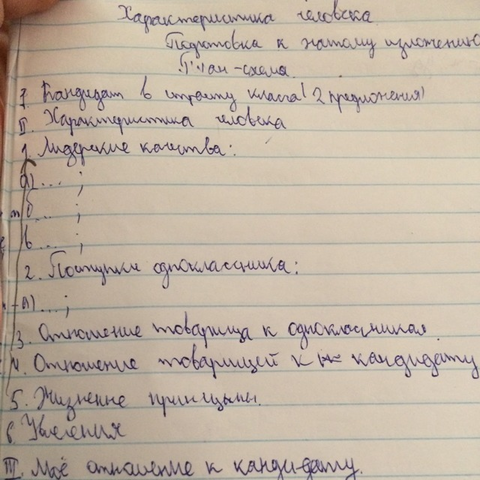 Характеристика человека
Подготовка к жатому изложению
План-схема
I. Кандидат в старосту класса (2 предложения)
II. Характеристика человека
1. Лидерские качества:
а)... ;
б... ;
в... ;
2. Поступки одноклассника:
а)...;
3. Отношение товарища к одноклассникам.
4. Отношение товарищей к кандидату
5. Жизненне принципы.
6 Увления
III. Моё отношение к кандидату.